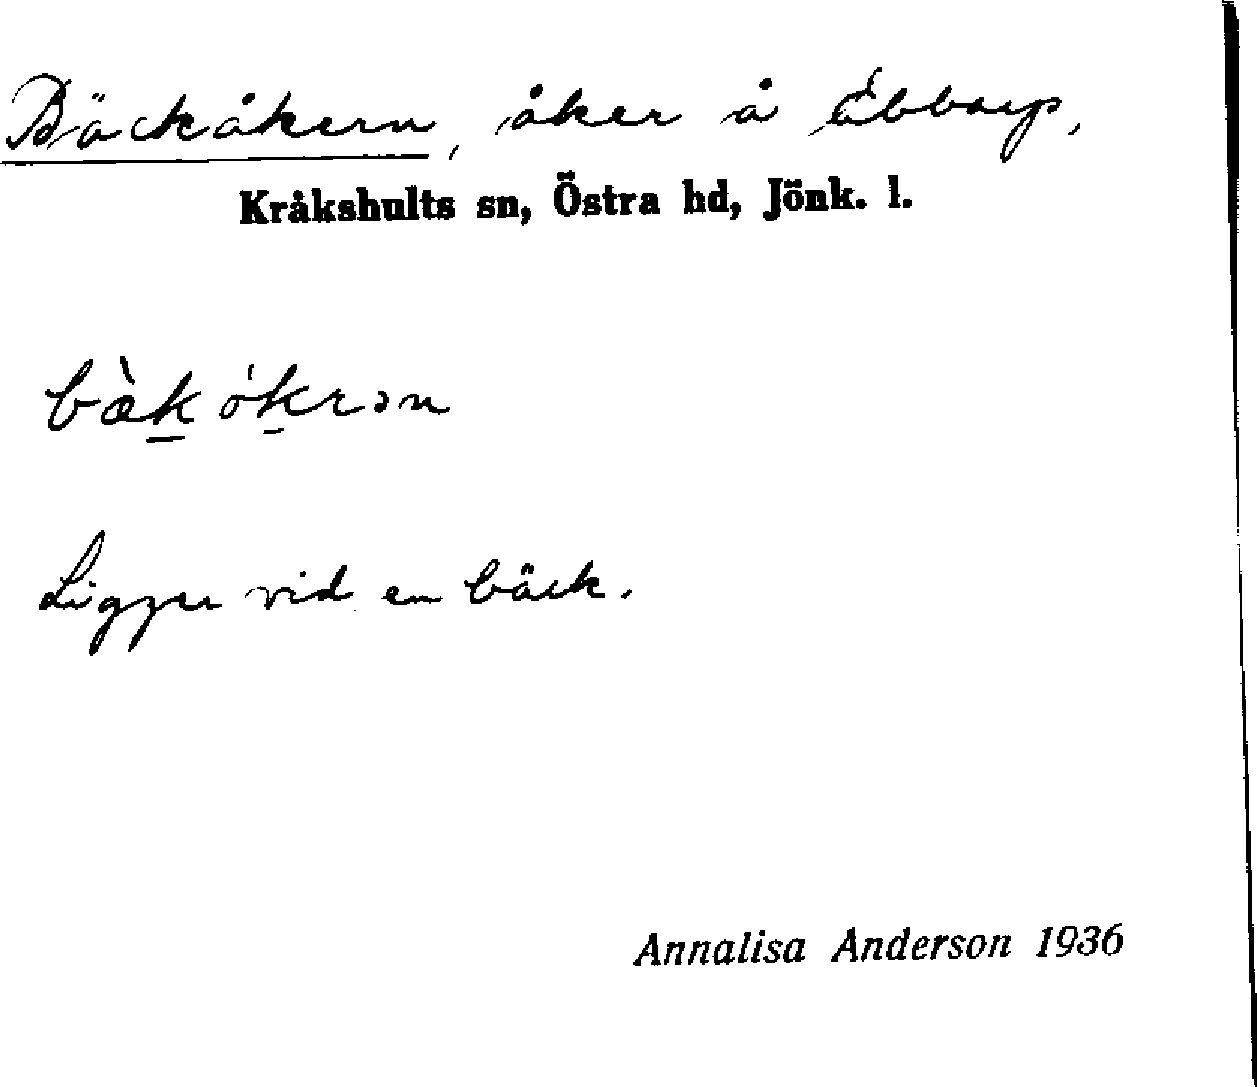 Bäckåkern, åker å Ebbarp,
Kråkshults sn, Östra hd, Jönk. l.
bæ̀k ókrən
Ligger vid en bäck.
Annalisa Anderson 1936